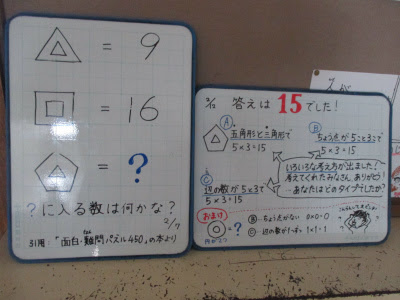 = 9
= 16
= ?
?に入る数は何かな?
2/7
引用:「面白・難問パズル450」の本より
2/12 答えは15でした!
A
五角形と三角形で
5×3=15
B
ちょう点が5こと3こで
5×3=15
C
辺の数が5×3で
5×3=15
いろいろな考え方が出ました!
考えてくれたみなさん、ありがとう!
…あなたはどのタイプでしたか?
おまけ
= ?
円が2つ
B…ちょう点がない 0×0=0
C…辺の数が1つずつ 1×1=1